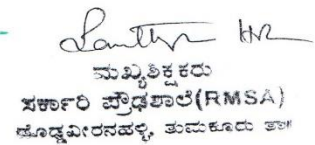 ಮುಖ್ಯಶಿಕ್ಷಕರು
ಸರ್ಕಾರಿ ಪ್ರೌಢಶಾಲೆ(RMSA)
ದೊಡ್ಡವೀರನಹಳ್ಳಿ, ತುಮಕೂರು ತಾ||